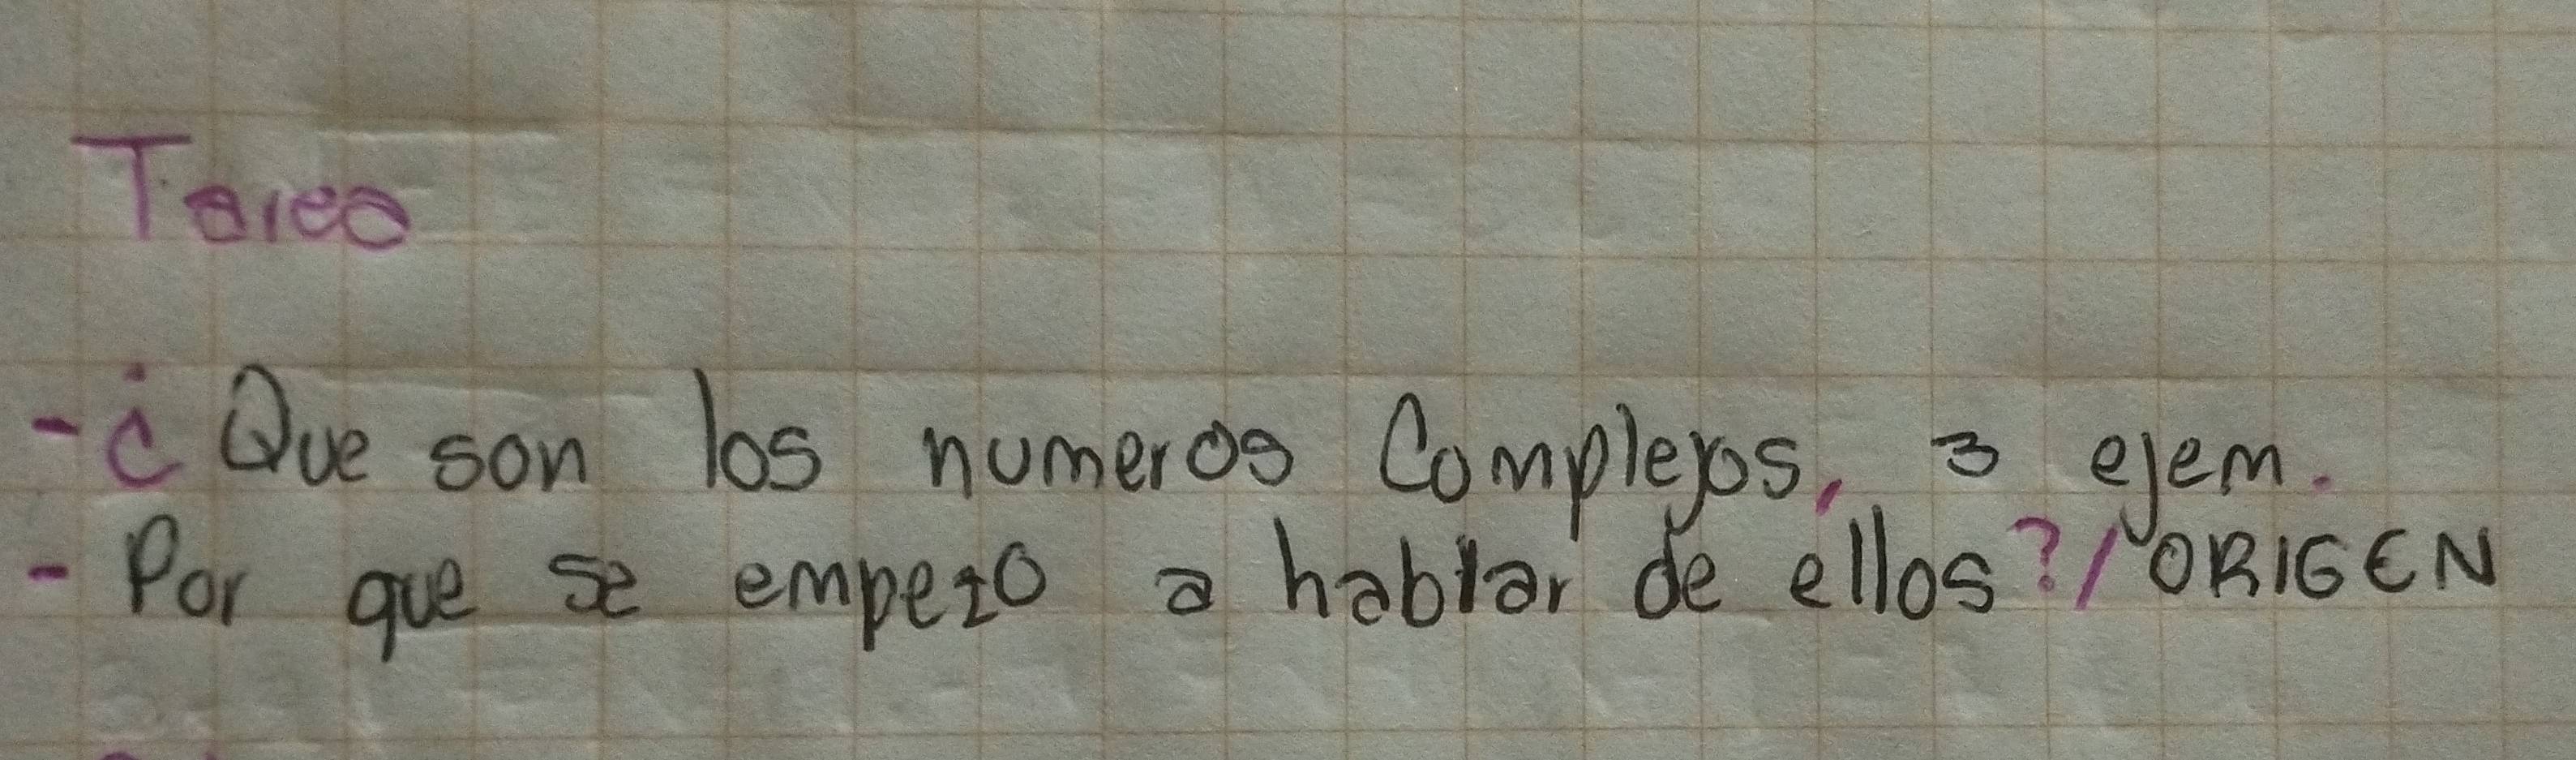 Tarea
- ¿Que son los numeros Complejos, 3 ejem.
- Por que se empezo a hablar de ellos?/ORIGEN